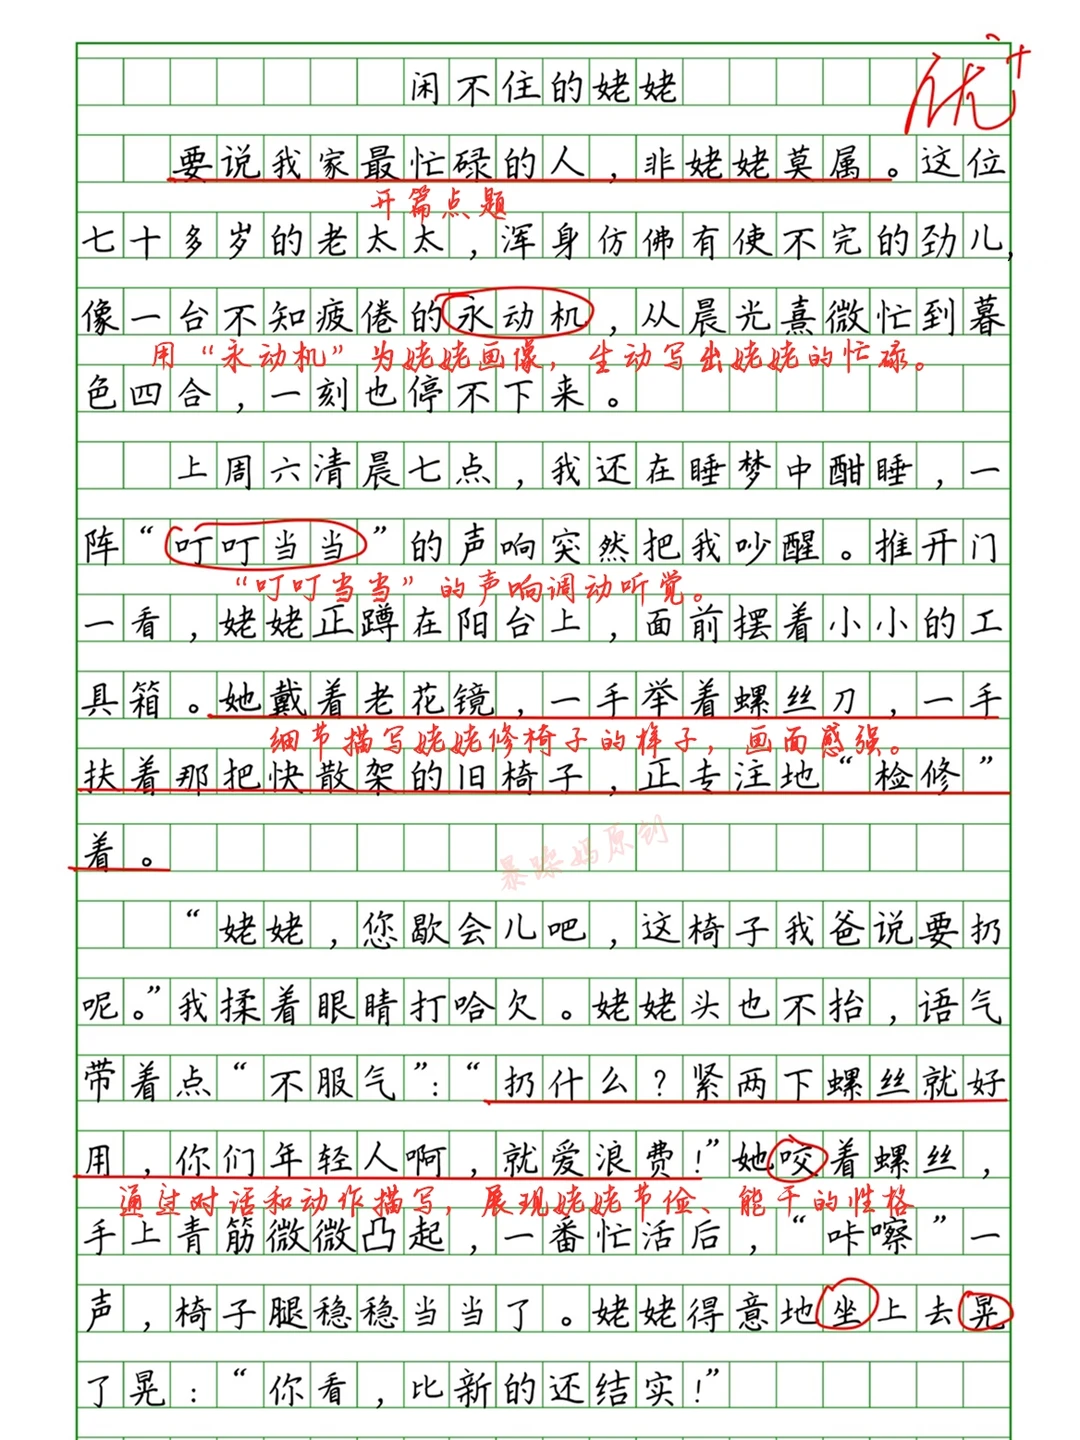 闲不住的姥姥
优+
要说我家最忙碌的人，非姥姥莫属。这位
开篇点题
七十多岁的老太太，浑身仿佛有使不完的劲儿，
像一台不知疲倦的永动机，从晨光熹微忙到暮
用“永动机”为姥姥画像，生动写出姥姥的忙碌。
色四合，一刻也停不下来。
上周六清晨七点，我还在睡梦中酣睡，一
阵“叮叮当当”的声响突然把我吵醒。推开门
“叮叮当当”的声响调动听觉。
一看，姥姥正蹲在阳台上，面前摆着小小的工
具箱。她戴着老花镜，一手举着螺丝刀，一手
细节描写姥姥修椅子的样子，画面感强。
扶着那把快散架的旧椅子，正专注地“检修”
着。
暴躁妈原创
“姥姥，您歇会儿吧，这椅子我爸说要扔
呢。”我揉着眼睛打哈欠。姥姥头也不抬，语气
带着点“不服气”：“扔什么？紧两下螺丝就好
用，你们年轻人啊，就爱浪费！”她咬着螺丝，
通过对话和动作描写，展现姥姥节俭、能干的性格
手上青筋微微凸起，一番忙活后，“咔嚓”一
声，椅子腿稳稳当当了。姥姥得意地坐上去晃
了晃：“你看，比新的还结实！”